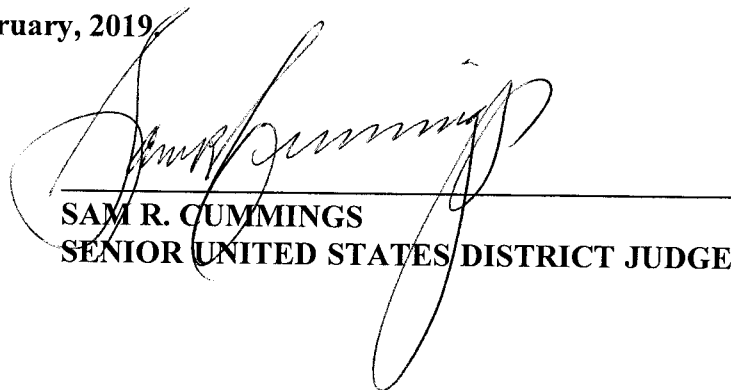 ruary, 2019.
Sam R Cummings
SAM R. CUMMINGS
SENIOR UNITED STATES DISTRICT JUDGE